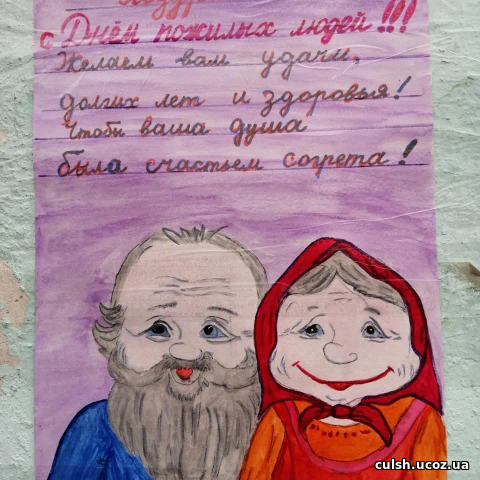 с Днём пожилых людей!!!
Желаем вам удачи,
долгих лет и здоровья!
Чтобы ваша душа
была счастьем согрета!
culsh.ucoz.ua